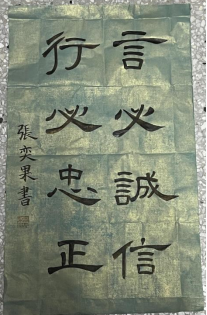 言必誠信
行必忠正
張奕果書